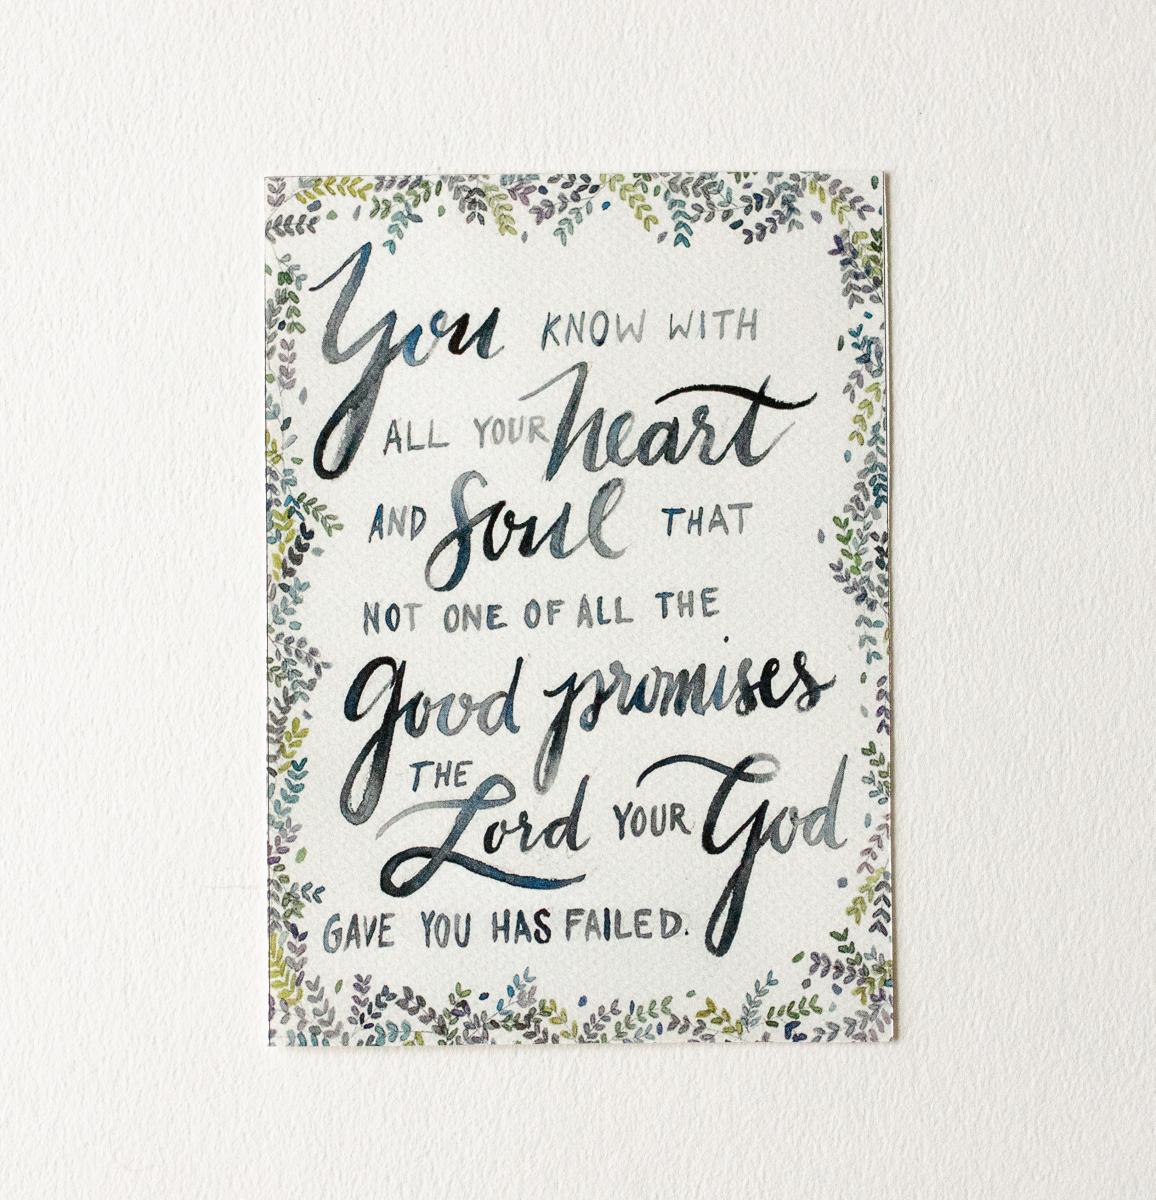 You KNOW WITH
ALL YOUR heart
AND Soul THAT
NOT ONE OF ALL THE
good promises
THE
Lord YOUR God
GAVE YOU HAS FAILED.